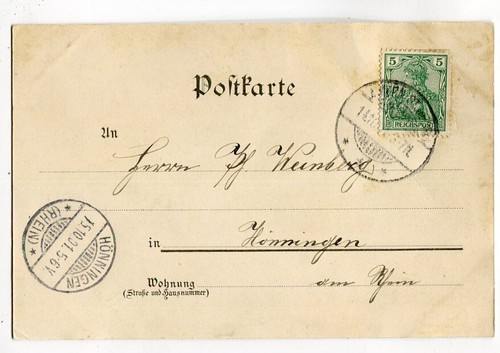 5 5
REICHSPOST
Postkarte
An
Herrn Ph Weinberg
in Hönningen
am Rhein
Wohnung
(Straße und Hausnummer)
HÖNNINGEN
15.10.01.5-6V.
* (RHEIN) *